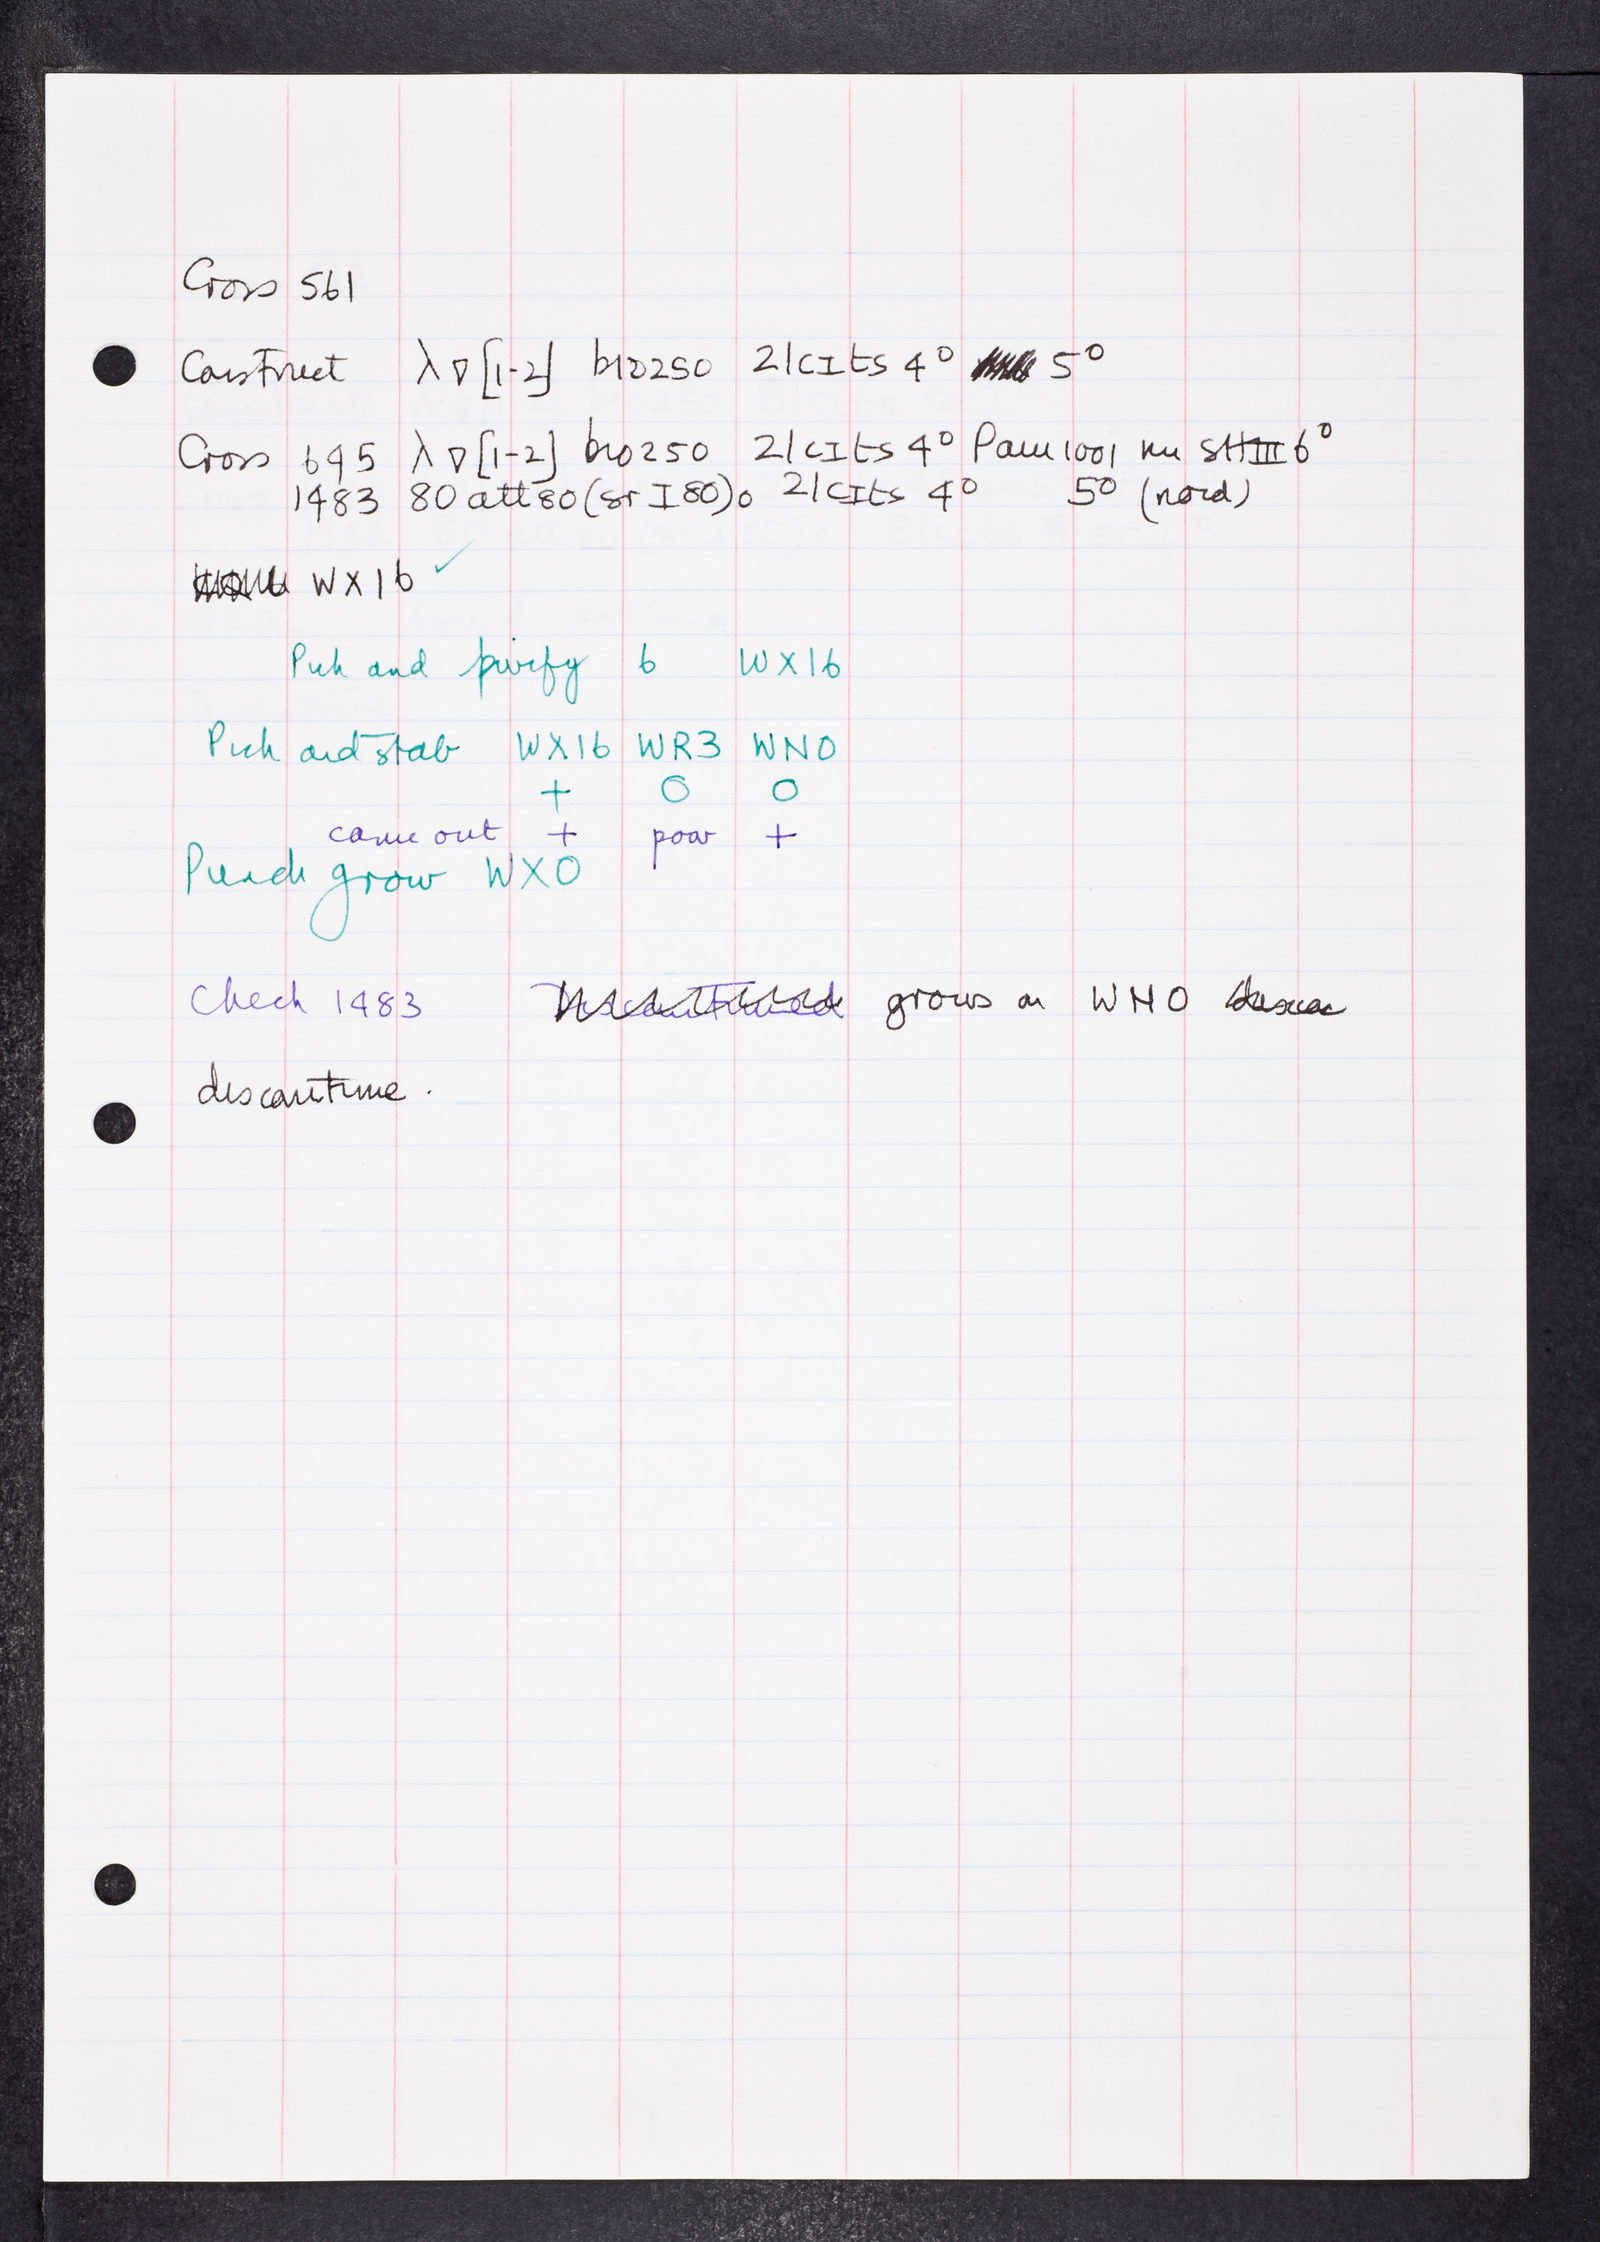 Cross 561
Construct λ∇[1-2] bio250 21cIts 4° 5°
Cross 645 λ∇[1-2] bio250 21cIts 4° Pam1001 nu SHIII6°
1483 80att80(srI80)o 21cIts 4° 5° (nard)
WX16 ✓
Pick and purify 6 WX16
Pick and stab WX16 WR3 WNO
+ 0 0
came out + poor +
Punch grow WXO
Check 1483 Discontinued grows on WNO
discontinue.